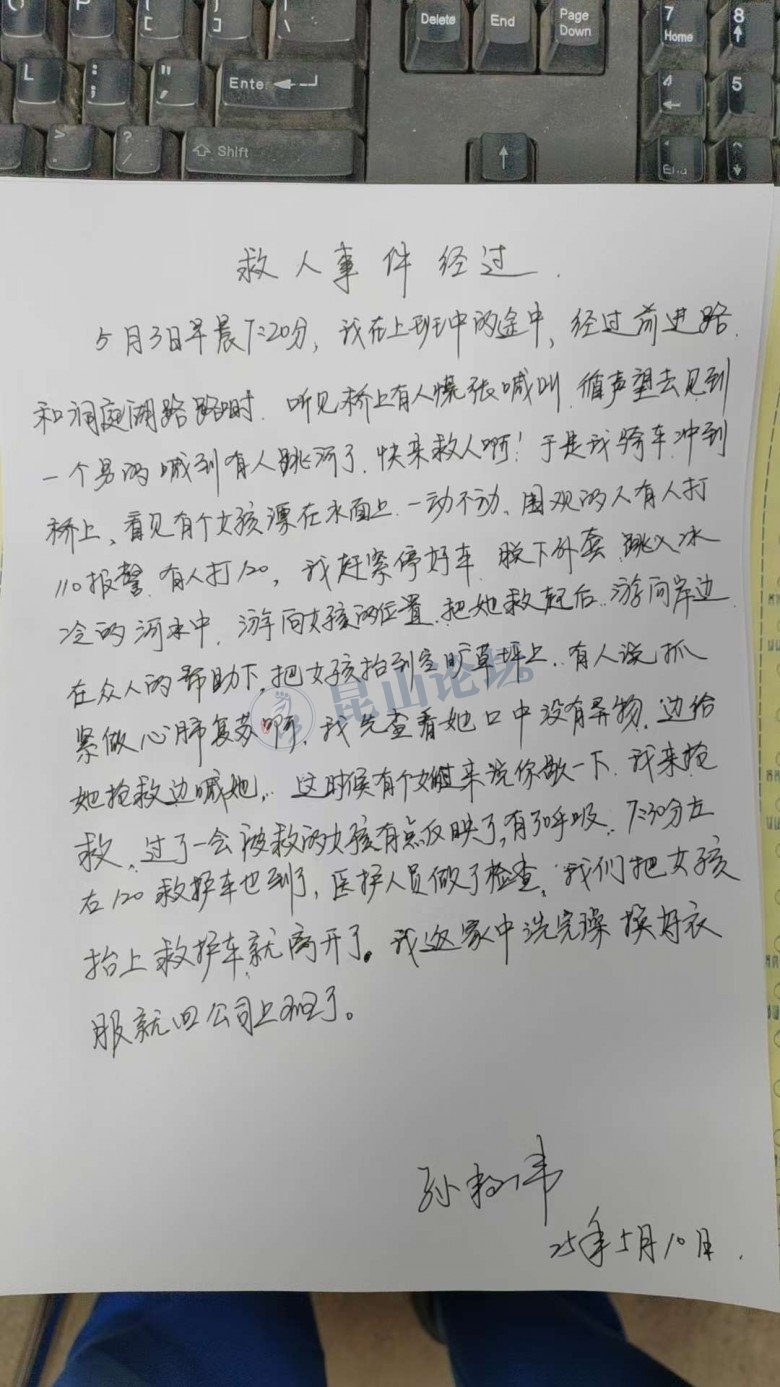 P
[
{
]
}
|
\
Delete
End
Page
Down
7
Home
8
L
:
;
"
'
Enter
4
5
>
.
?
/
Shift
1
End
2
救人事件经过.
5月3日早晨7:20分，我在上班中的途中，经过前进路
和洞庭湖路路时.听见桥上有人慌张喊叫.循声望去见到
一个男的喊到有人跳河了.快来救人啊！于是我骑车冲到
桥上，看见有个女孩漂在水面上.一动不动、围观的人有人打
110报警.有人打120，我赶紧停好车.脱下外套.跳入冰
冷的河水中.游向女孩的位置.把她救起后..游向岸边.
在众人的帮助下,把女孩抬到空旷草坪上..有人说抓
紧做心肺复苏啊.我先查看她口中没有异物.边给
她抢救边喊她..这时候有个女过来说你歇一下.我来抢
救.过了一会被救的女孩有点反映了,有了呼吸.7:30分左
右120救护车也到了，医护人员做了检查.我们把女孩
抬上救护车就离开了。我返家中洗完澡换好衣
服就回公司上班了。
昆山论坛
孙
25年5月10日.